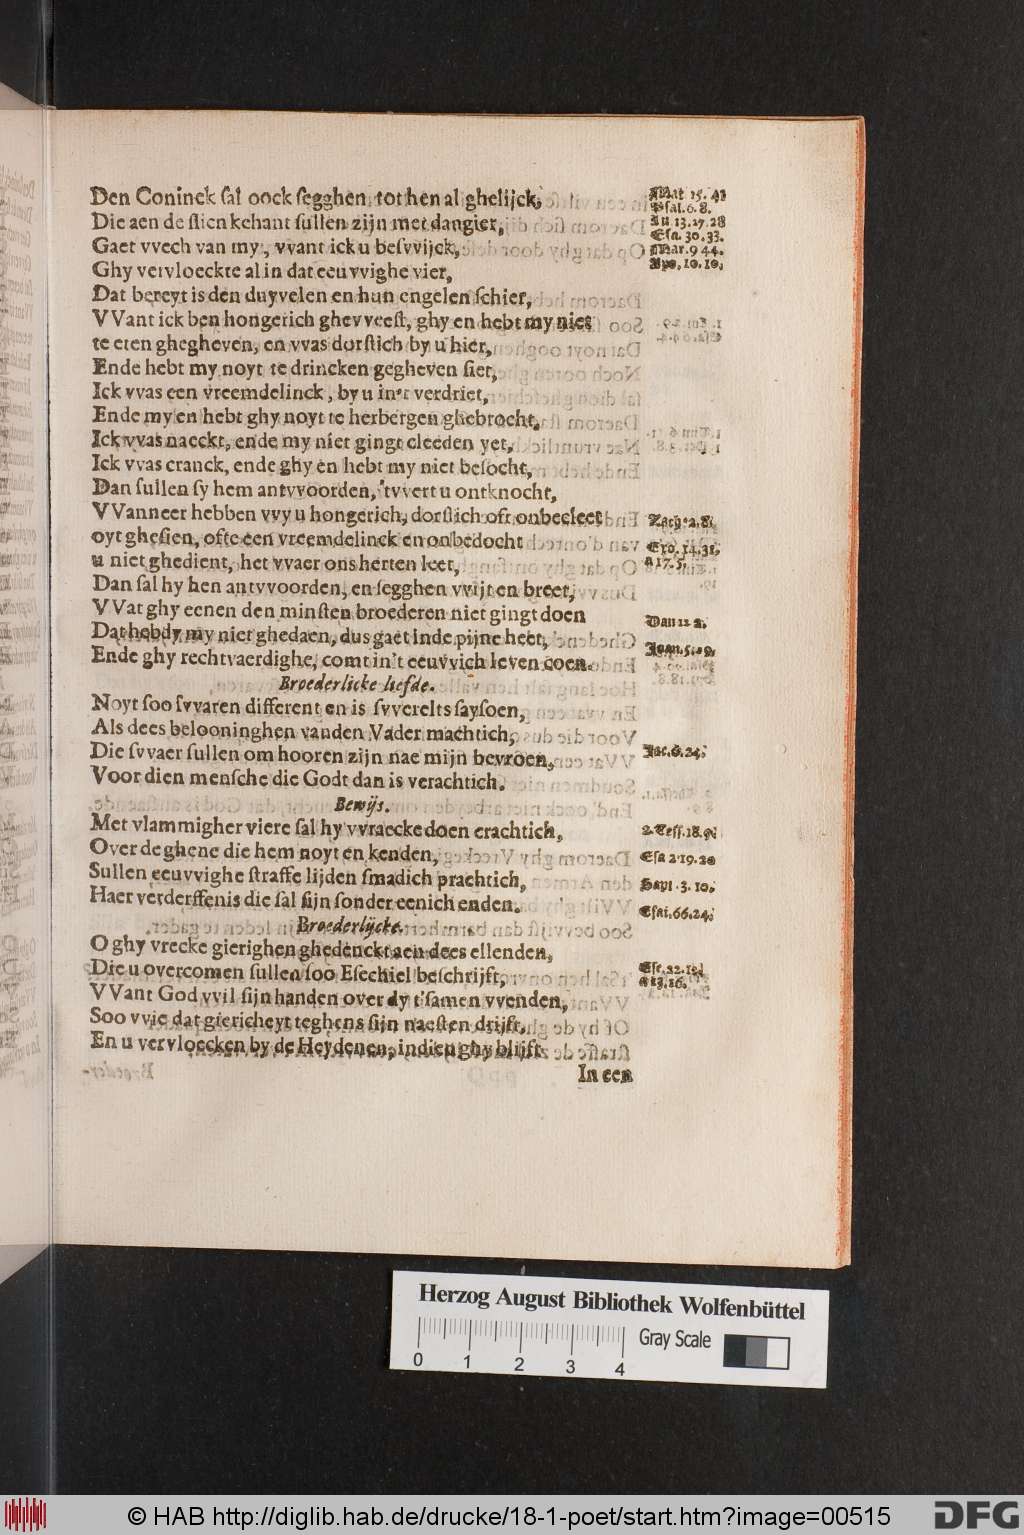 Den Coninck sal oock segghen tot hen al ghelijck,
Mat 15. 41
Psal. 6. 8.
Die aen de slincke hant sullen zijn met dangier,
Lu 13. 27. 28
Esa. 30. 33.
Gaet vvech van my, vvant ick u besvvijck,
Mar. 9 44.
Ghy vervloeckte al in dat eeuvvighe vier,
Apo. 10. 10.
Dat bereyt is den duyvelen en hun engelen schier,
VVant ick ben hongerich ghevveest, ghy en hebt my niet
te eten ghegheven, en vvas dorstich by u hier,
Ende hebt my noyt te drincken gegheven siet,
Ick vvas een vreemdelinck, by u in't verdriet,
Ende my en hebt ghy noyt te herbergen ghebrocht,
Ick vvas naeckt, ende my niet gingt cleeden yet,
Ick vvas cranck, ende ghy en hebt my niet besocht,
Dan sullen sy hem antvvoorden, 'tvvert u ontknocht,
VVanneer hebben vvy u hongerich, dorstich oft onbecleet
Zach. 2. 8.
oyt ghesien, ofte een vreemdelinck en onbedocht
Ero. 14. 31.
u niet ghedient, het vvaer ons herten leet,
a 17. 5.
Dan sal hy hen antvvoorden, en segghen vvijt en breet,
VVat ghy eenen den minsten broederen niet gingt doen
Dan 12 2.
Dat hebdy my niet ghedaen, dus gaet inde pijne heet,
Joan. 5. 29.
Ende ghy rechtvaerdighe, comt in't eeuvvich leven coen.
Broederlicke liefde.
Noyt soo svvaren different en is svverelts saysoen,
Als dees belooninghen vanden Vader machtich,
Die svvaer sullen om hooren zijn nae mijn bevroen,
Jac. 6. 24.
Voor dien mensche die Godt dan is verachtich.
Bewijs.
Met vlammigher viere sal hy vvraecke doen crachtich,
2. Tess. 18. 9.
Over de ghene die hem noyt en kenden,
Esa 2 19. 20
Sullen eeuvvighe straffe lijden smadich prachtich,
Sapi. 3. 10.
Haer verderffenis die sal sijn sonder eenich enden.
Esai. 66. 24.
Broederlijcke.
O ghy vrecke gierighen ghedenckt aen dees ellenden,
Die u overcomen sullen soo Esechiel beschrijft,
Ese. 22. 12.
a 13. 16.
VVant God vvil sijn handen over dy t'samen vvenden,
Soo vvie dat giericheyt teghens sijn naesten drijft,
En u vervloecken by de Heydenen, indien ghy blijft
In een
Herzog August Bibliothek Wolfenbüttel
Gray Scale
0 1 2 3 4
© HAB http://diglib.hab.de/drucke/18-1-poet/start.htm?image=00515
DFG